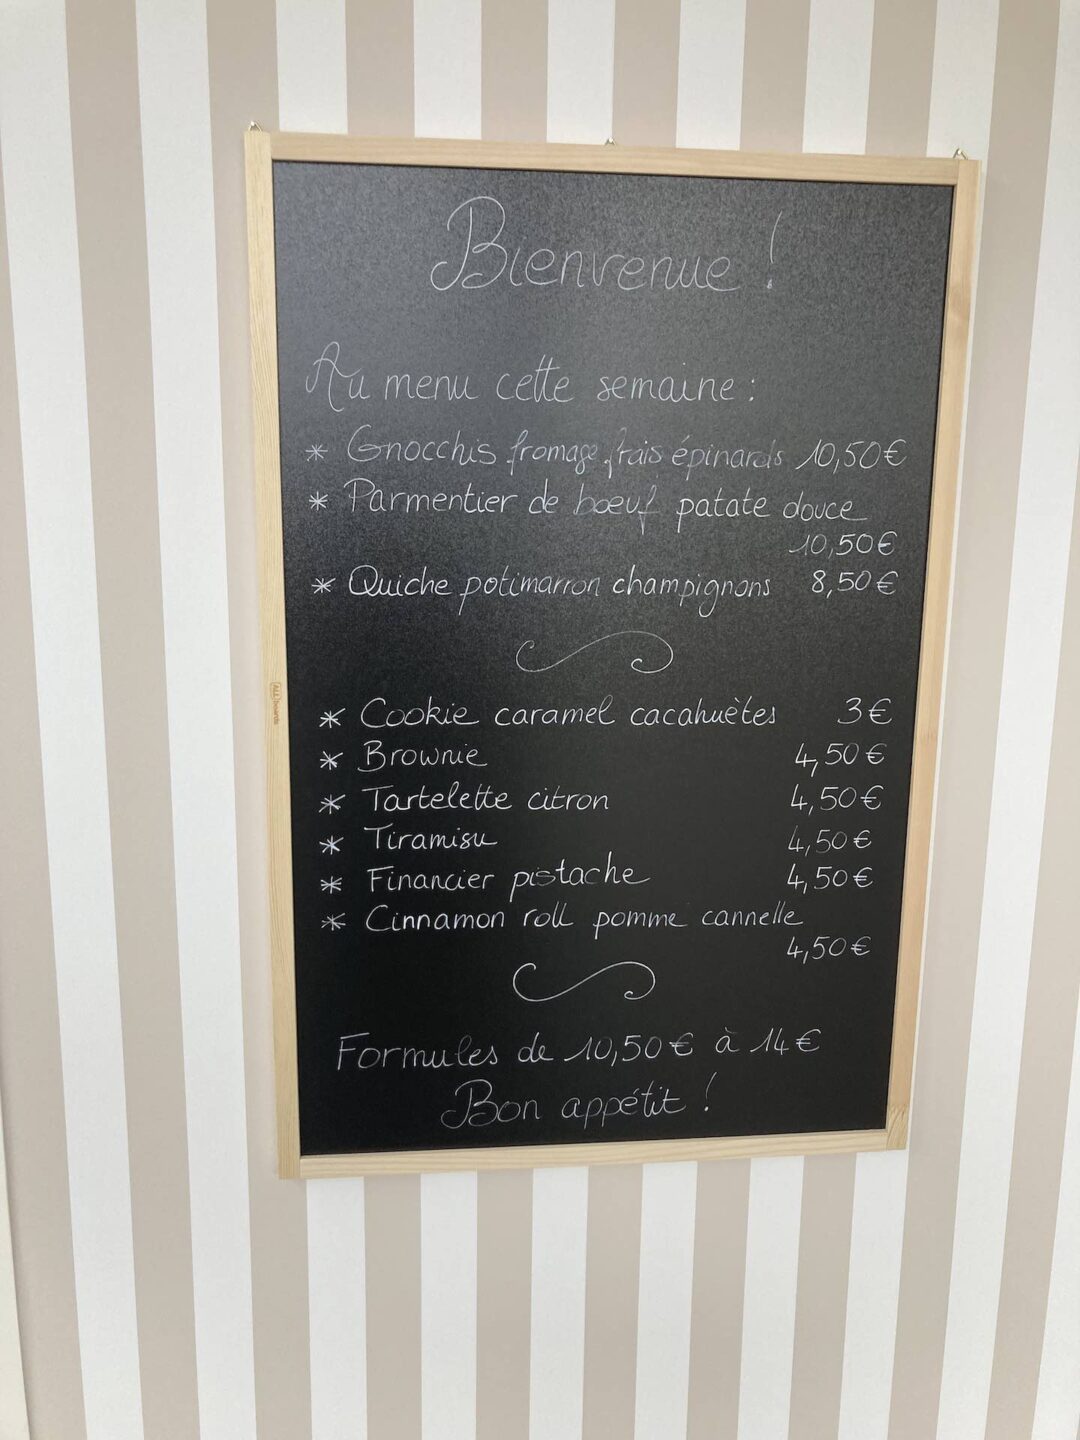 Bienvenue !
Au menu cette semaine :
* Gnocchis fromage frais épinards 10,50€
* Parmentier de bœuf patate douce
10,50€
* Quiche potimarron champignons 8,50€
* Cookie caramel cacahuètes 3€
* Brownie 4,50€
* Tartelette citron 4,50€
* Tiramisu 4,50€
* Financier pistache 4,50€
* Cinnamon roll pomme cannelle
4,50€
Formules de 10,50€ à 14€
Bon appétit !
ALL boards